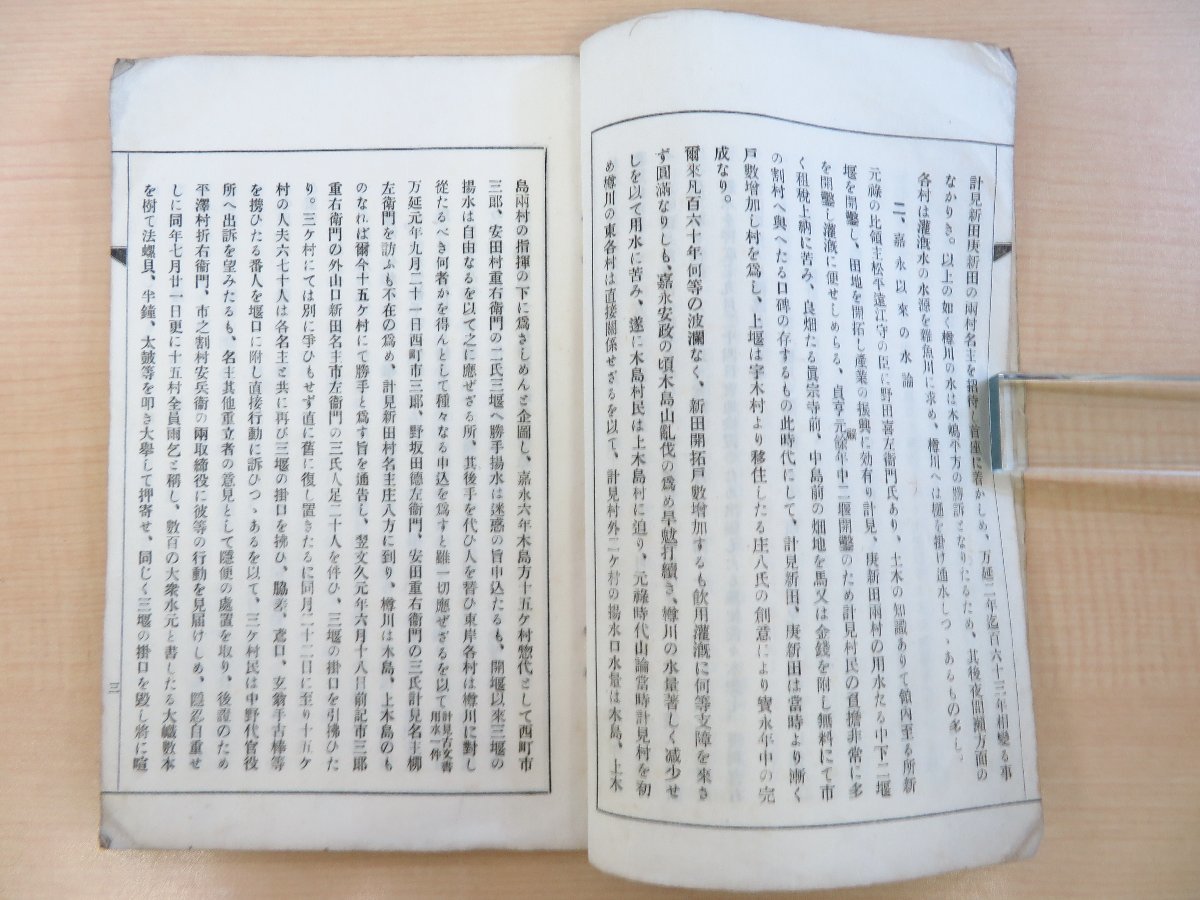 計見新田庚新田の兩村名主を招待し首座に着かしめ、万延二年迄百六十三年相變る事
なかりき。以上の如く樽川の水は木嶋平方の勝訴となりたるため、其後夜間瀨方面の
各村は灌漑水の水源を雜魚川に求め、樽川へは樋を掛け通水しつゝあるもの多し。
二、嘉永以來の水論
元祿の比領主松平遠江守の臣に野田喜左衞門氏あり、土木の知識ありて領內至る所新
堰を開鑿し、田地を開拓し產業の振興に効有り計見、庚新田兩村の用水たる中下二堰
を開鑿し灌漑に便せしめらる、貞享元祿年中二堰開鑿のため計見村民の負擔非常に多
く租稅上納に苦み、良畑たる眞宗寺前、中島前の畑地を馬又は金錢を附し無料にて市
の割村へ與へたる口碑の存するもの此時代にして、計見新田、庚新田は當時より漸く
戶數增加し村を爲し、上堰は宇木村より移住したる庄八氏の創意により寳永年中の完
成なり。
爾來凡百六十年何等の波瀾なく、新田開拓戶數增加するも飮用灌漑に何等支障を來さ
ず圓滿なりしも、嘉永安政の頃木島山亂伐の爲め旱魃打續き、樽川の水量著しく減少せ
しを以て用水に苦み、遂に木島村民は上木島村に迫り、元祿時代山論當時計見村を初
め樽川の東各村は直接關係せざるを以て、計見村外二ケ村の揚水口水量は木島、上木
島兩村の指揮の下に爲さしめんと企圖し、嘉永六年木島方十五ケ村惣代として西町市
三郎、安田村重右衞門の二氏三堰へ勝手揚水は迷惑の旨申込たるも、開堰以來三堰の
揚水は自由なるを以て之に應ぜざる所、其後手を代ひ人を替ひ東岸各村は樽川に對し
從たるべき何者かを得んとして種々なる申込を爲すと雖一切應ぜざるを以て計見古文書用水一件
万延元年九月二十一日西町市三郎、野坂田德左衞門、安田重右衞門の三氏計見名主柳
左衞門を訪ふも不在の爲め、計見新田村名主庄八方に到り、樽川は木島、上木島のも
のなれば爾今十五ケ村にて勝手と爲す旨を通告し、翌文久元年六月十八日前記市三郎
重右衞門の外山口新田名主市左衞門の三氏人足二十人を伴ひ、三堰の掛口を引拂ひた
り。三ケ村にては別に爭ひもせず直に舊に復し置きたるに同月二十二日に至り十五ケ
村の人夫六七十人は各名主と共に再び三堰の掛口を拂ひ、脇差、鳶口、玄翁手古棒等
を携ひたる番人を堰口に附し直接行動に訴ひつゝあるを以て、三ケ村民は中野代官役
所へ出訴を望みたるも、名主其他重立者の意見として隱便の處置を取り、後證のため
平澤村折右衞門、市之割村安兵衞の兩取締役に彼等の行動を見屆けしめ、隱忍自重せ
しに同年七月廿一日更に十五村全員雨乞と稱し、數百の大衆水元と書したる大幟數本
を樹て法螺貝、半鐘、太皷等を叩き大擧して押寄せ、同じく三堰の掛口を毀し將に喧
三